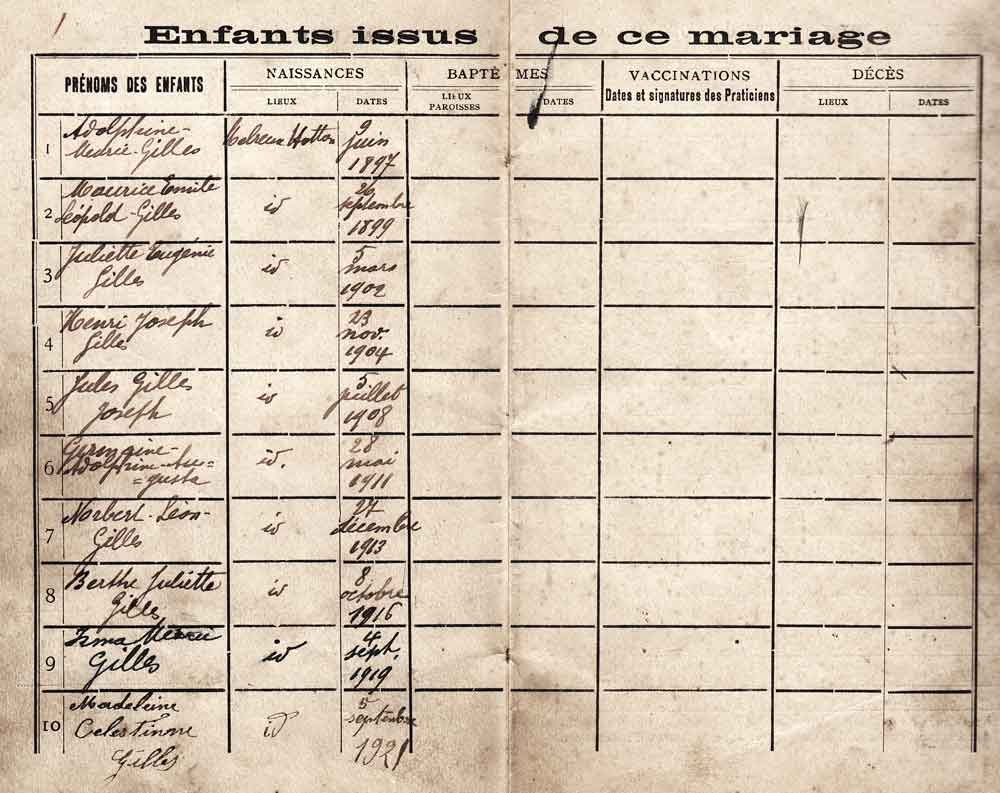 Enfants issus de ce mariage
PRÉNOMS DES ENFANTS
NAISSANCES
BAPTÊMES
VACCINATIONS
DÉCÈS
LIEUX
DATES
LIEUX
PAROISSES
DATES
Dates et signatures des Praticiens
LIEUX
DATES
1
Adolphine-
Marie-Gilles
Melreux Hotton
9
juin
1897
2
Maurice Emile
Léopold-Gilles
id
26
septembre
1899
3
Juliette Eugénie
Gilles
id
5
mars
1902
4
Henri Joseph
Gilles
id
23
nov.
1904
5
Jules Gilles
Joseph
id
5
juillet
1908
6
Germaine-
Adolphine-Au=
=gusta
id.
28
mai
1911
7
Norbert-Léon-
Gilles
id
27
décembre
1913
8
Berthe Juliette
Gilles
id
8
octobre
1916
9
Irma
Gilles
id
4
sept.
1919
10
Madeleine
Gilles
id
5
septembre
1921